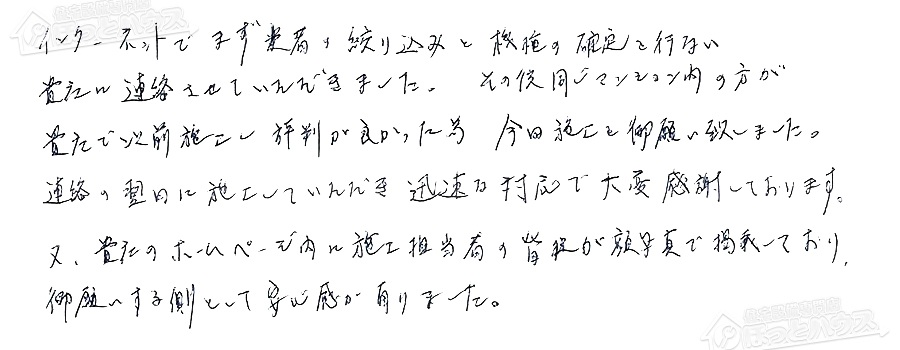 インターネットでまず業者の絞り込みと機種の確定を行ない
貴社に連絡させていただきました。その後同じマンション内の方が
貴社で以前施工し評判が良かった為今回施工を御願い致しました。
連絡の翌日に施工していただき迅速な対応で大変感謝しております。
又、貴社のホームページ内に施工担当者の皆様が顔写真で掲載しており、
御願いする側として安心感が有りました。